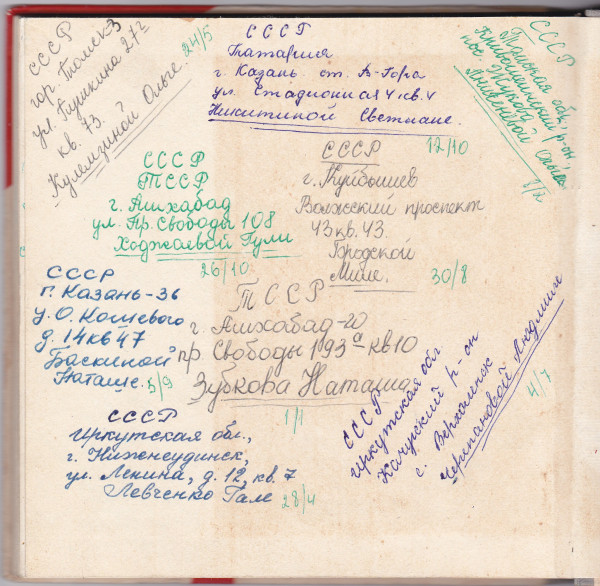 СССР
гор. Томск-3
ул. Пушкина 27г
кв. 73.
Кулемзиной Ольге.
24/5
СССР
Татария
г. Казань ст. А-Гора
ул. Стадионная 4 кв. 4
Никитиной Светлане.
12/10
СССР
Томская обл.,
р-он,
пос.
Ольге
1/2
СССР
ТССР
г. Ашхабад
ул. Пр. Свободы 108
Ходжаевой Гули
26/10
СССР
г. Куйбышев
Волжский проспект
43 кв. 43.
Городской
Миле.
30/8
СССР
г. Казань-36
у. О. Кошевого
д. 14 кв 47
Баскиной
Наташе.
5/9
ТССР
г. Ашхабад-20
пр. Свободы 193а кв 10
Зубкова Наташа
1/1
СССР
Иркутская обл.
Качугский р-он
с. Верхоленск
Черепановой Людмиле
4/7
СССР
Иркутская обл.,
г. Нижнеудинск,
ул. Ленина, д. 12, кв. 7
Левченко Гале
28/4